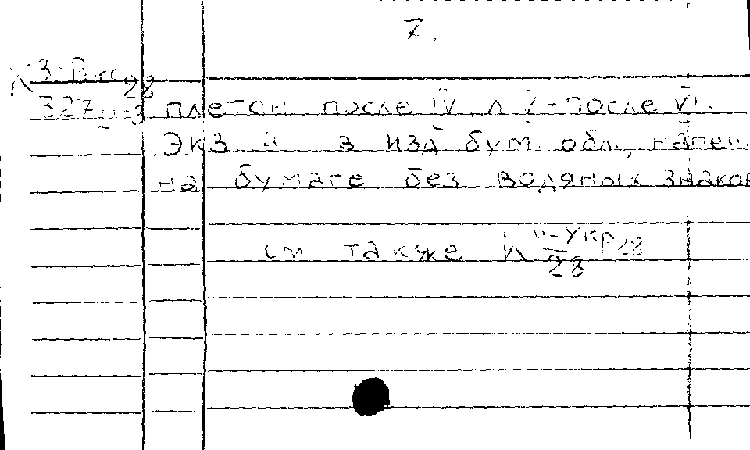 7.
К 3-Виц
28
327 п-3 плетен после IV, л 2 - после VI.
Экз 4 в изд бум. обл., напеч
на бумаге без водяных знаков
см также К II-Укр 28
28